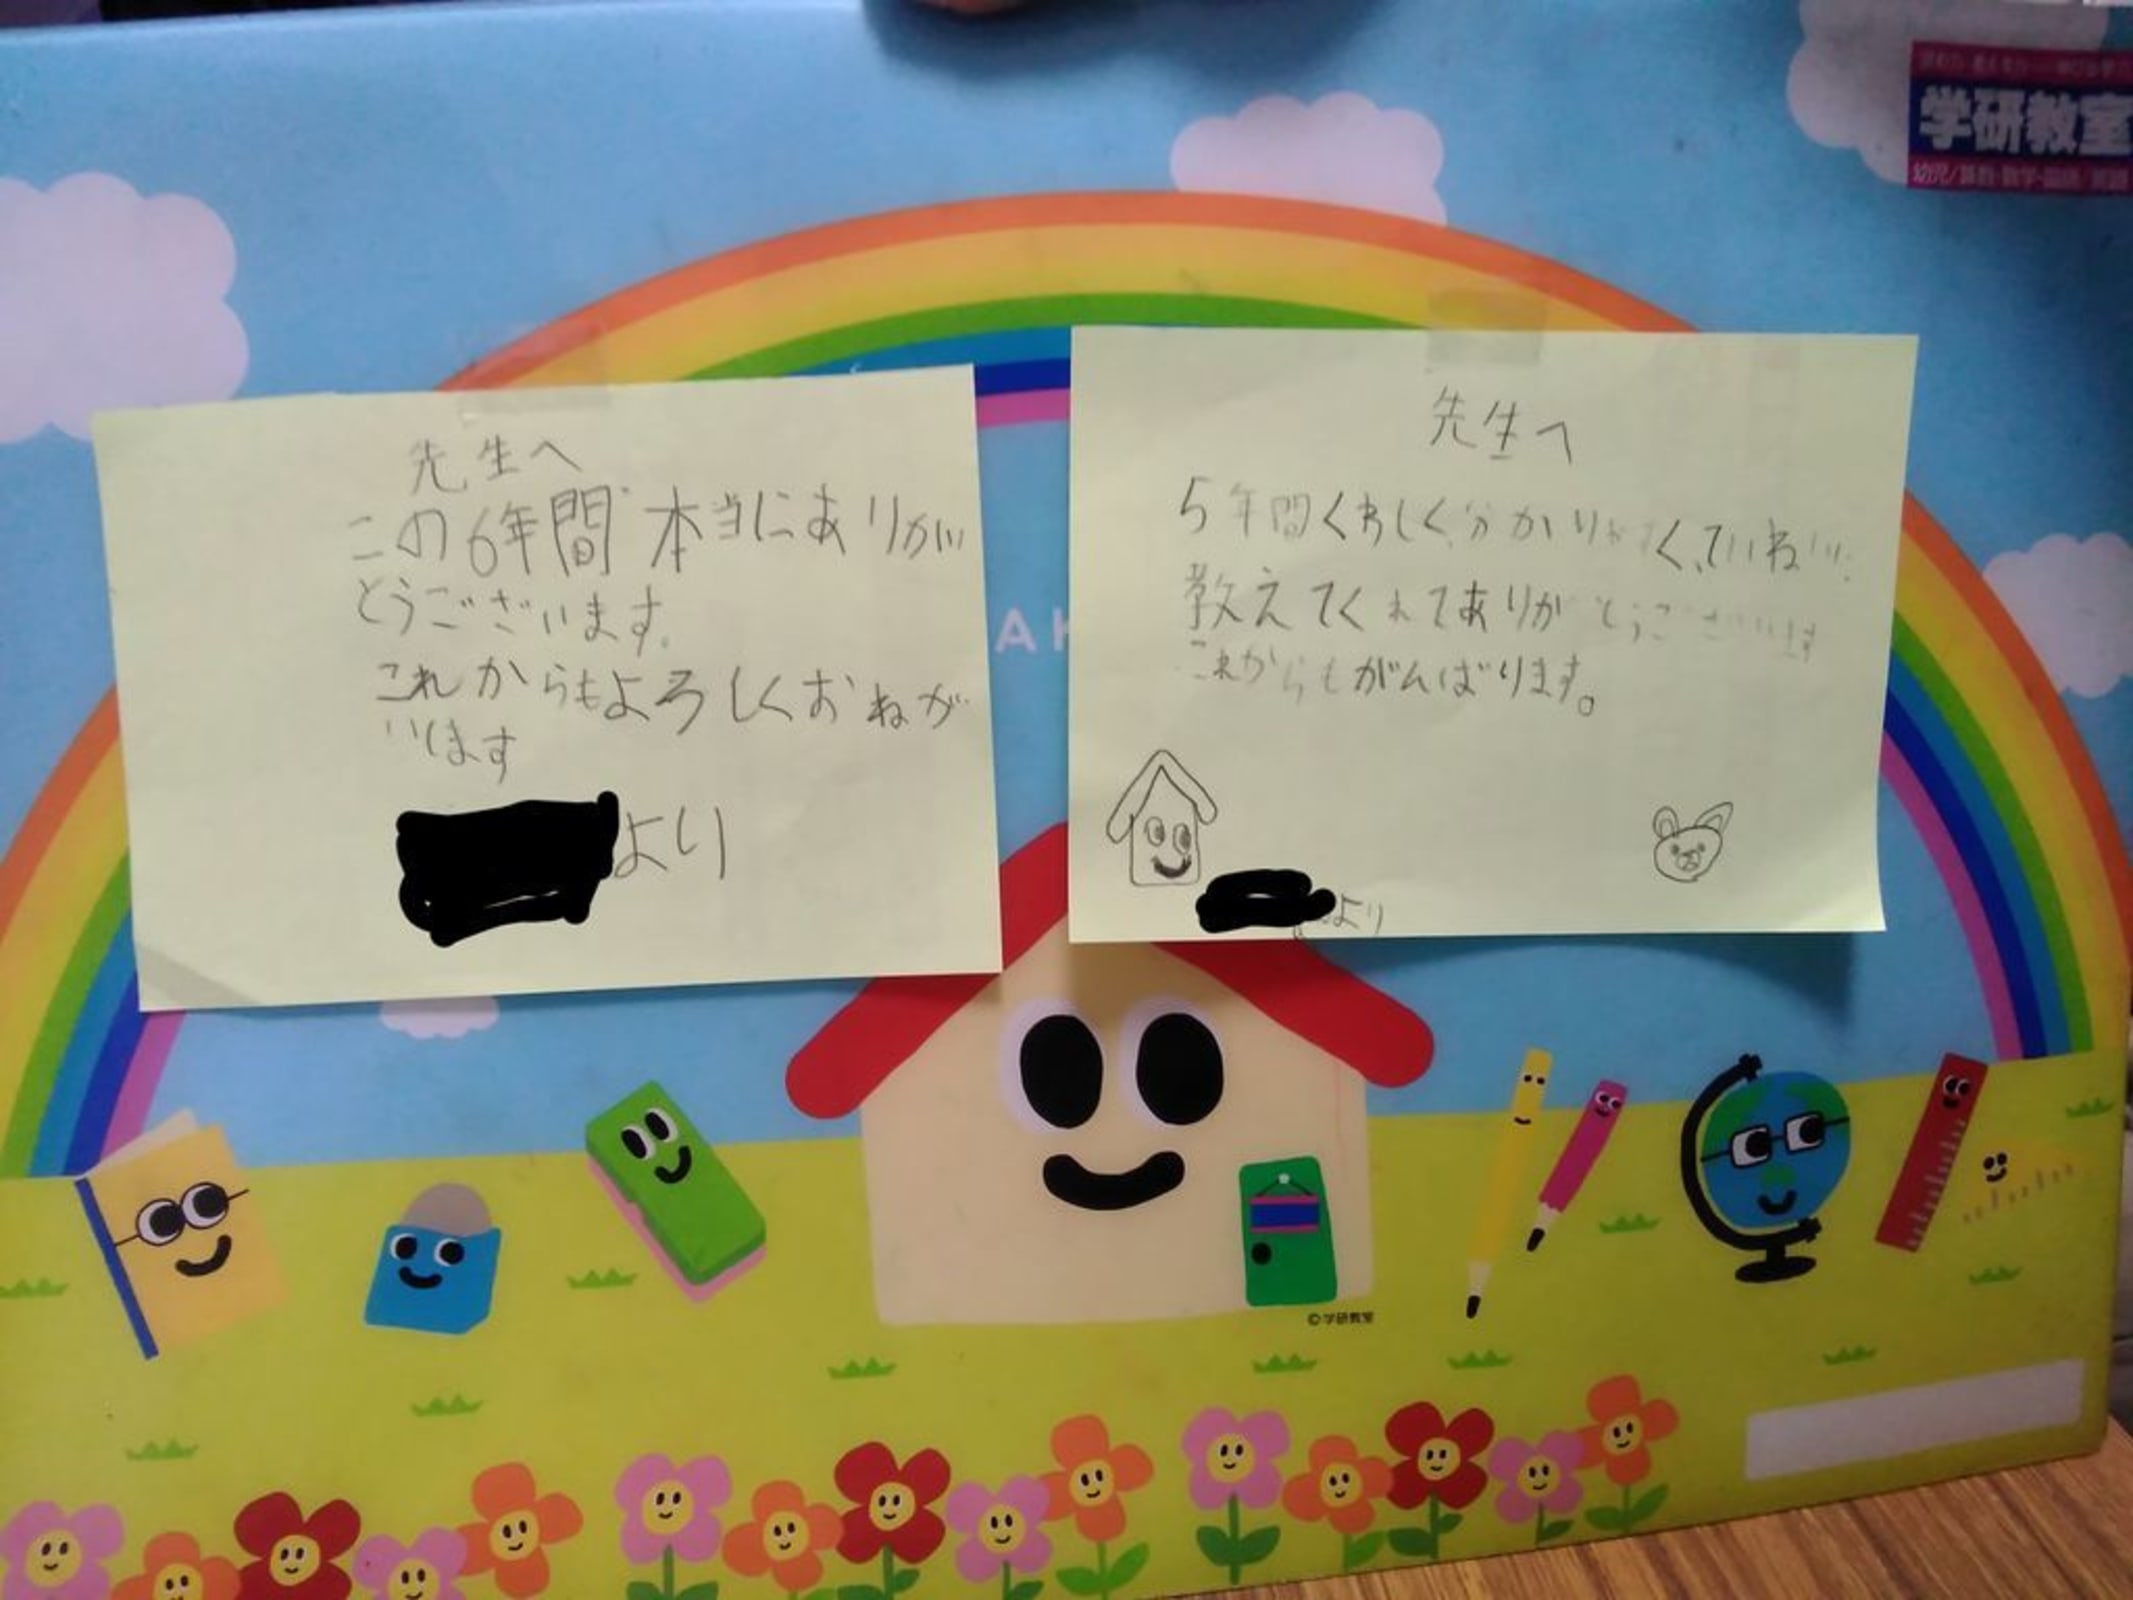 学研教室
先生へ
この6年間本当にありがい
とうございます。
これからもよろしくおねが
いします
より
先生へ
5年間くわしく分かりやすく、ていねいに
教えてくれてありがとうございます
これからもがんばります。
より
AK
©学研教室